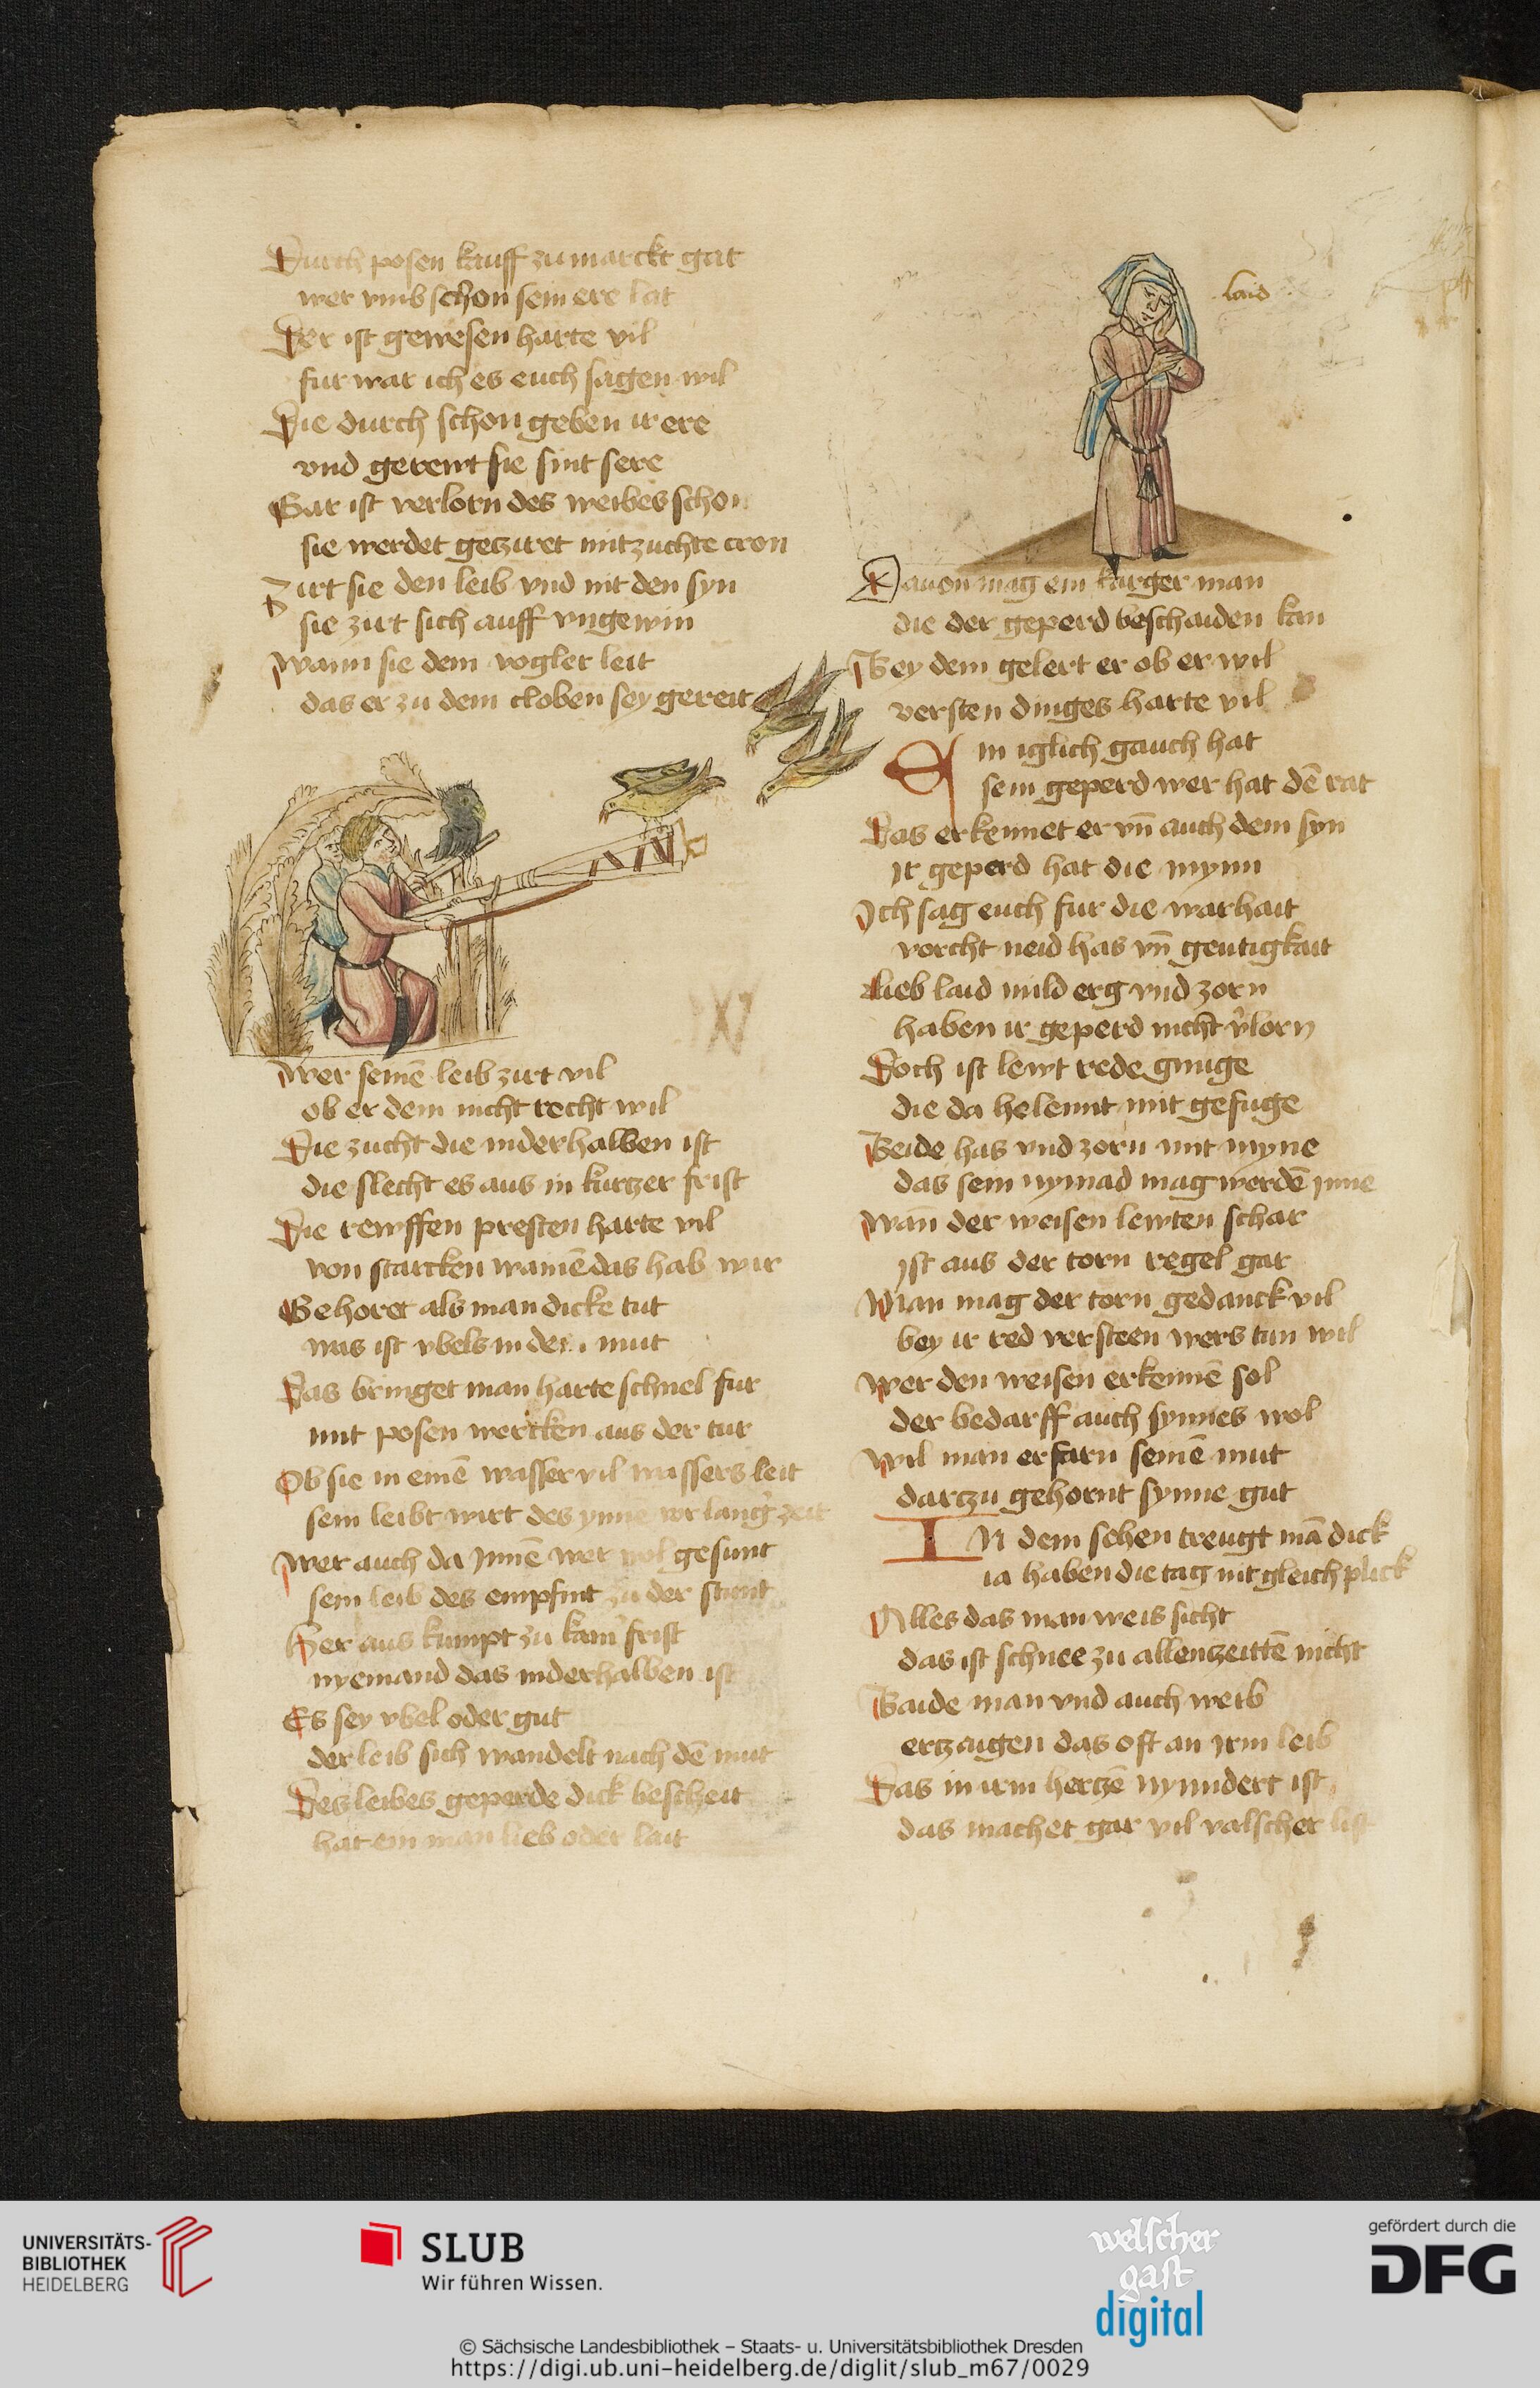 Durch posen kauff zu marckt gat
wer vmb schon sein ere lat
Der ist gewesen harte vil
fur war ich es euch sagen wil
Die durch schon geben ir ere
vnd gerewt sie sint sere
Gar ist verlorn des weibes schon
sie werdet gecziret mit zuchte cron
Zirt sie den leib vnd nit den syn
sie zirt sich auff vngewin
Wann sie dem vogler leit
das er zu dem cloben sey gereit
Wer seinē leib zirt vil
ob er dem nicht recht wil
Die zucht die inderhalben ist
die slecht es aus in kurtzer frist
Die rewffen presten harte vil
von starcken das hab wir
Gehoret als man dicke tut
was ist vbels in mut
Das bringet man harte schnel fur
mit posen wercken aus der tur
Ob sie in einē wasser vil wassers leit
sein leibt wirt des ynne vor lang zeit
Wer auch da Innē wer wol gesunt
sein leib des empfint zu der stunt
Her aus kumpt zu frist
nyemand das inderhalben ist
Es sey vbel oder gut
der leib sich wandelt nach dē mut
Des leibes geperde dick bescheit
hat ein man lieb oder lait
laid
Dauon mag ein karger man
die der geperd beschaiden kan
Bey dem gelert er ob er wil
versten dinges harte vil
in iglich gauch hat
sein geperd wer hat dē rat
Das erkennet er vn̄ auch dem syn
Ir geperd hat die mynn
Ich sag euch fur die warhait
vorcht neid has vn̄ geutigkait
lieb laid mild erg vnd zorn
haben ir geperd nicht v̾lorn
Doch ist lewt rede gnuge
die da helennt mit gefuge
Beide has vnd zorn mit myne
das sein nymad mag werdē Inne
Wan̄ der weisen lewten schar
Ist aus der torn regel gar
Man mag der torn gedanck vil
bey ir red versteen wers tun wil
Wer den weisen erkennē sol
der bedarff auch synnes wol
Wil man erfarn seinē mut
darczu gehornt synne gut
IN dem sehen treugt mā dick
ia haben die tag nit gleich plick
Alles das man weis sicht
das ist schnee zu allenzeittē nicht
Baide man vnd auch weib
erczaigen das oft an Irm leib
Das in irm herczē nynndert ist
das machet gar vil valscher list
UNIVERSITÄTS-
BIBLIOTHEK
HEIDELBERG
SLUB
Wir führen Wissen.
welscher
gast
digital
gefördert durch die
DFG
© Sächsische Landesbibliothek – Staats- u. Universitätsbibliothek Dresden
https://digi.ub.uni-heidelberg.de/diglit/slub_m67/0029